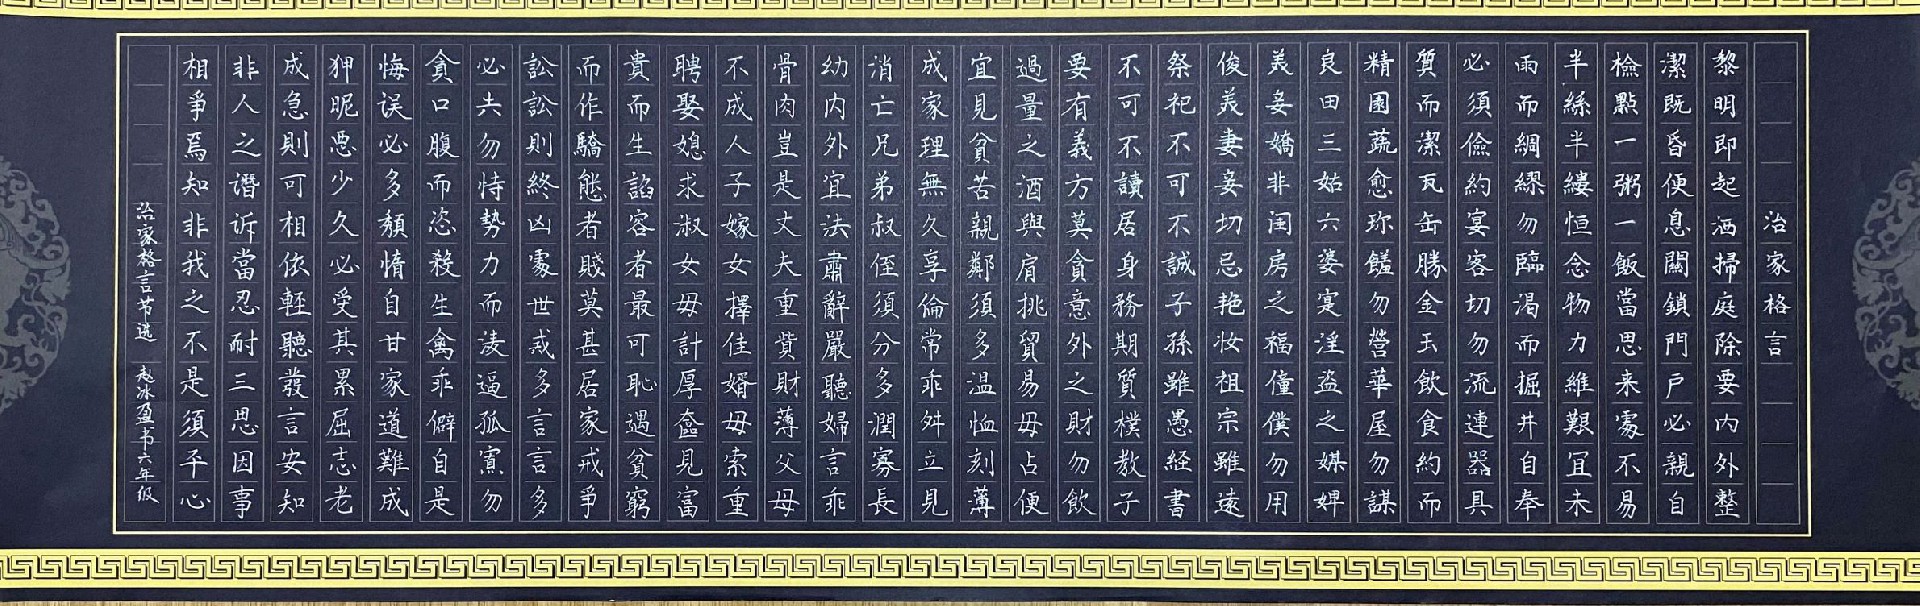 治家格言
黎明即起洒掃庭除要内外整
潔既昏便息關鎖門户必親自
檢點一粥一飯當思来處不易
半絲半縷恒念物力維艱宜未
雨而綢繆勿臨渴而掘井自奉
必須儉約宴客切勿流連器具
質而潔瓦缶勝金玉飲食約而
精園蔬愈珍饈勿營華屋勿謀
良田三姑六婆寔淫盗之媒婢
美妾嬌非闺房之福僮僕勿用
俊美妻妾切忌艳妆祖宗雖遠
祭祀不可不誠子孫雖愚経書
不可不讀居身務期質樸教子
要有義方莫貪意外之財勿飲
過量之酒與肩挑貿易毋占便
宜見貧苦親鄰須多温恤刻薄
成家理無久享倫常乖舛立見
消亡兄弟叔侄須分多潤寡長
幼内外宜法肅辭嚴聽婦言乖
骨肉豈是丈夫重貲財薄父母
不成人子嫁女擇佳婿毋索重
聘娶媳求淑女毋計厚奩見富
貴而生諂容者最可恥遇貧窮
而作驕態者賤莫甚居家戒爭
訟訟則終凶處世戒多言言多
必失勿恃勢力而淩逼孤寡勿
貪口腹而恣殺生禽乖僻自是
悔误必多頽惰自甘家道難成
狎昵恶少久必受其累屈志老
成急則可相依輕聽發言安知
非人之譖诉當忍耐三思因事
相爭焉知非我之不是須平心
治家格言节选 赵冰盈书六年级